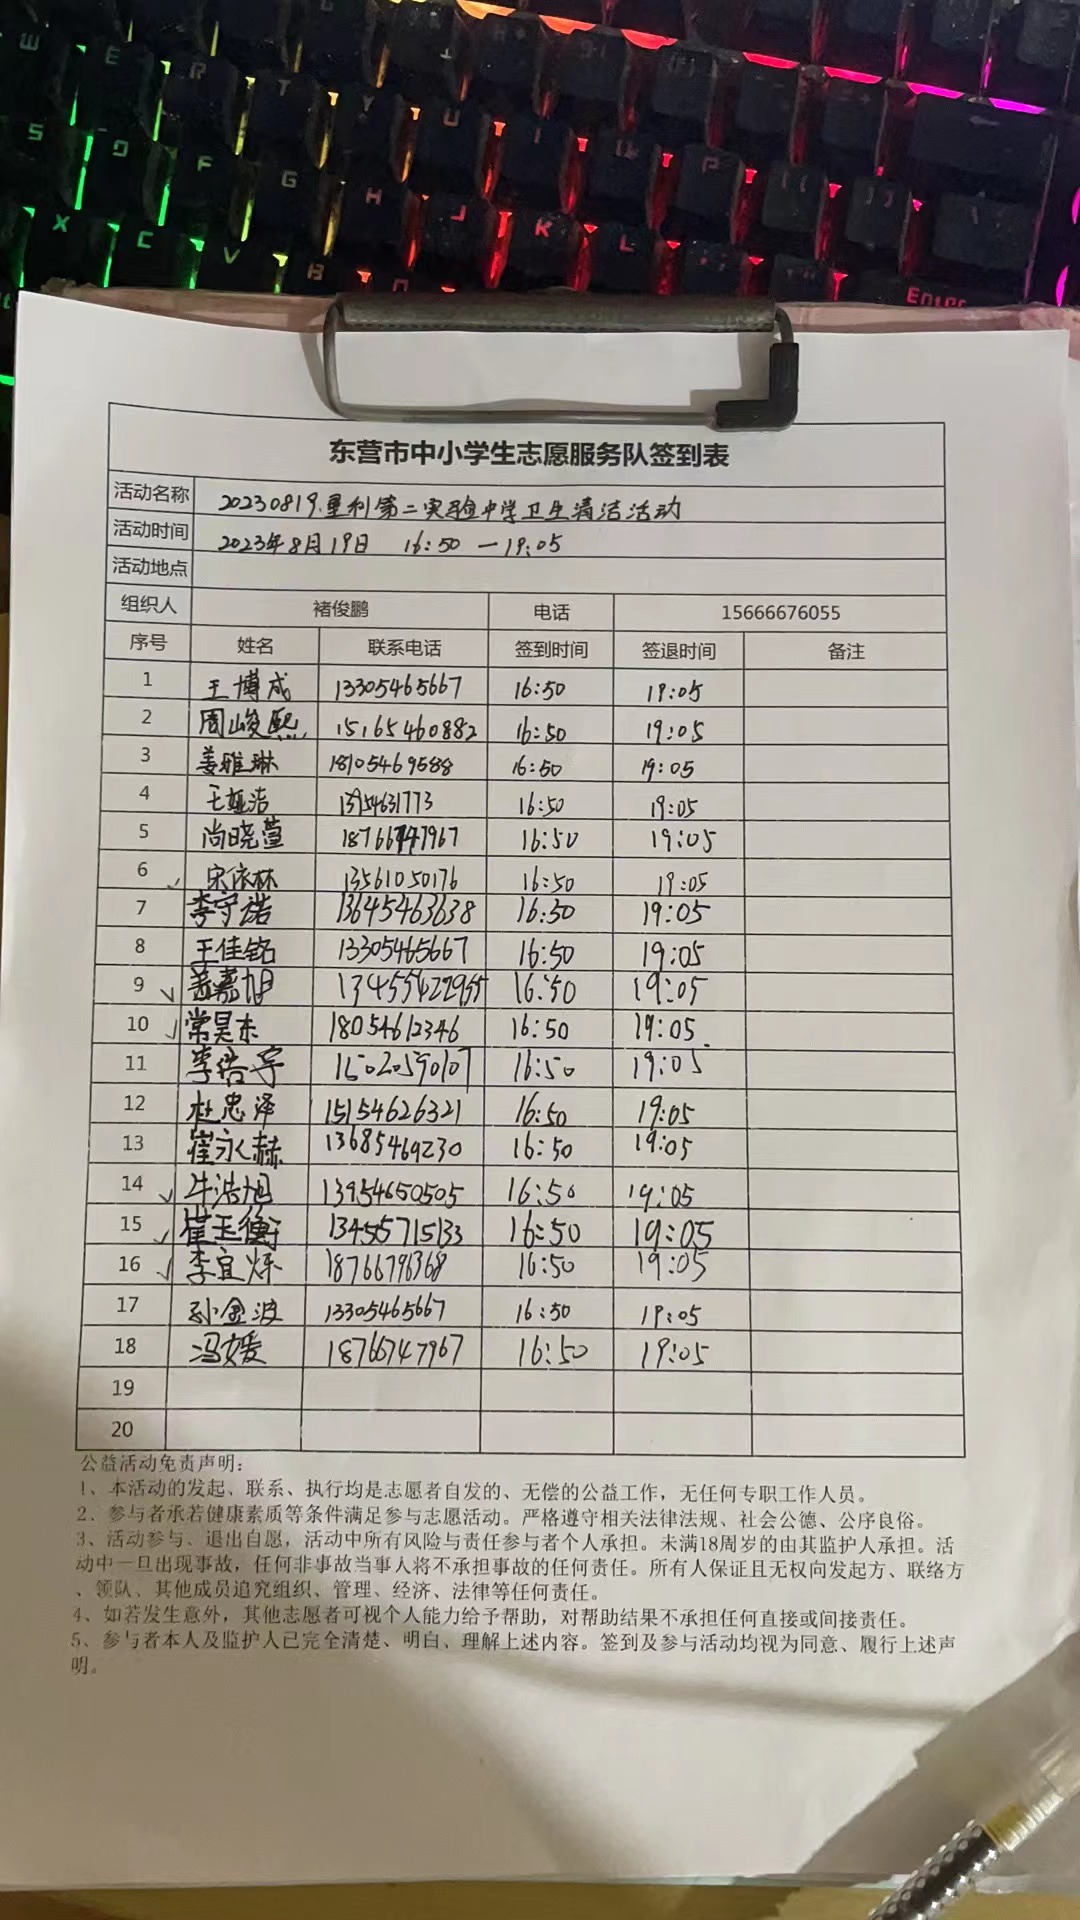 W E R T Y U I P
S D F G H J K L
X C V B Enter
东营市中小学生志愿服务队签到表
活动名称 20230819.垦利第二实验中学卫生清洁活动
活动时间 2023年8月19日 16:50 一19:05
活动地点
组织人 褚俊鹏 电话 15666676055
序号 姓名 联系电话 签到时间 签退时间 备注
1 王博成 13305465667 16:50 19:05
2 周峻熙 15165460882 16:50 19:05
3 姜雅琳 18105469588 16:50 19:05
4 王娅洁 13954631773 16:50 19:05
5 尚晓萱 18766747967 16:50 19:05
6 宋依林 13561050176 16:50 19:05
7 李宇诺 13645463638 16:50 19:05
8 王佳铭 13305465667 16:50 19:05
9 嘉旭 16:50 19:05
10 常昊东 18054612346 16:50 19:05
11 李浩宇 15020590107 16:50 19:05
12 杜忠泽 15154626321 16:50 19:05
13 崔永赫 13685469230 16:50 19:05
14 牛浩旭 13954650505 16:50 19:05
15 崔玉衡 13455715133 16:50 19:05
16 李宜烁 18766796368 16:50 19:05
17 孙金波 13305465667 16:50 19:05
18 冯媛 18766747967 16:50 19:05
19
20
公益活动免责声明:
1、本活动的发起、联系、执行均是志愿者自发的、无偿的公益工作，无任何专职工作人员。
2、参与者承若健康素质等条件满足参与志愿活动。严格遵守相关法律法规、社会公德、公序良俗。
3、活动参与、退出自愿，活动中所有风险与责任参与者个人承担。未满18周岁的由其监护人承担。活
动中一旦出现事故，任何非事故当事人将不承担事故的任何责任。所有人保证且无权向发起方、联络方
、领队、其他成员追究组织、管理、经济、法律等任何责任。
4、如若发生意外，其他志愿者可视个人能力给予帮助，对帮助结果不承担任何直接或间接责任。
5、参与者本人及监护人已完全清楚、明白、理解上述内容。签到及参与活动均视为同意、履行上述声
明。